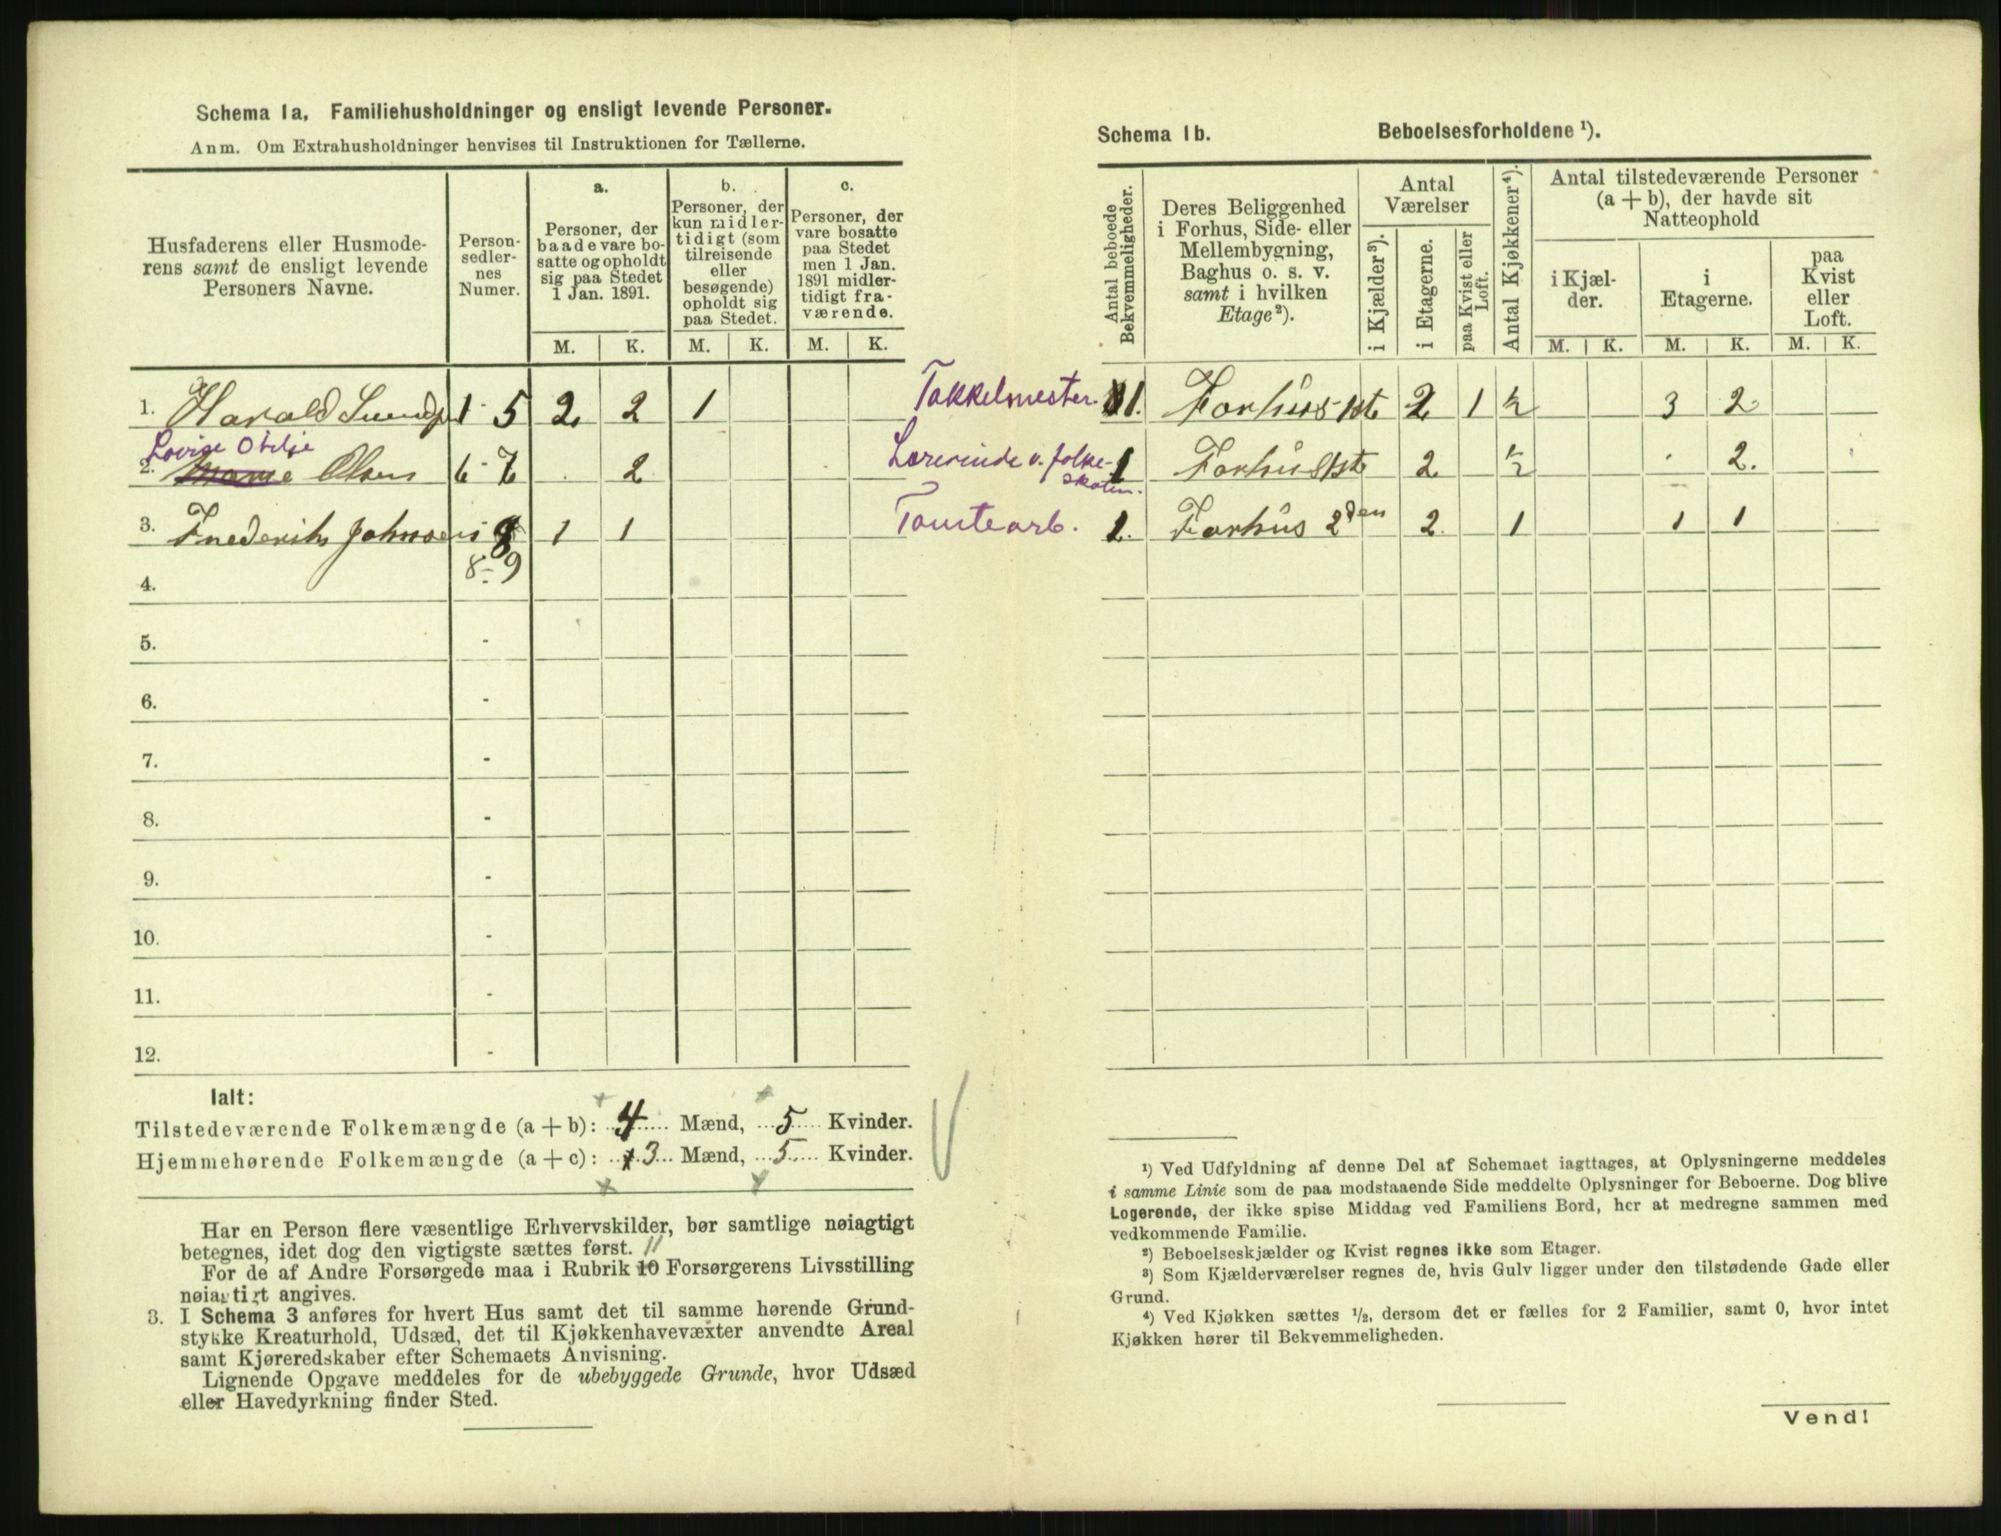 Schema 1a. Familiehusholdninger og ensligt levende Personer.
Anm. Om Extrahusholdninger henvises til Instruktionen for Tællerne.
Husfaderens eller Husmode-
rens samt de ensligt levende
Personers Navne.
Person-
sedler-
nes
Numer.
a.
Personer, der
baade vare bo-
satte og opholdt
sig paa Stedet
1 Jan. 1891.
b.
Personer, der
kun midler-
tidigt (som
tilreisende
eller
besøgende)
opholdt sig
paa Stedet.
c.
Personer, der
vare bosatte
paa Stedet
men 1 Jan.
1891 midler-
tidigt fra-
værende.
M. K. M. K. M. K.
1. Harald 1 - 5 2 2 1
Lovise Otilje
2. Olsen 6 - 7 2
3. Frederik Johnsen 8 1 1
8 - 9
4.
5. -
6. -
7. -
8. -
9. -
10. -
11. -
12. -
Ialt:
Tilstedeværende Folkemængde (a + b): 4 Mænd, 5 Kvinder.
Hjemmehørende Folkemængde (a + c): 3 Mænd, 5 Kvinder.
Har en Person flere væsentlige Erhvervskilder, bør samtlige nøiagtigt
betegnes, idet dog den vigtigste sættes først. 11
For de af Andre Forsørgede maa i Rubrik 10 Forsørgerens Livsstilling
nøiagtigt angives.
3. I Schema 3 anføres for hvert Hus samt det til samme hørende Grund-
stykke Kreaturhold, Udsæd, det til Kjøkkenhavevæxter anvendte Areal
samt Kjøreredskaber efter Schemaets Anvisning.
Lignende Opgave meddeles for de ubebyggede Grunde, hvor Udsæd
eller Havedyrkning finder Sted.
Schema 1b. Beboelsesforholdene ¹).
Antal beboede
Bekvemmeligheder.
Deres Beliggenhed
i Forhus, Side- eller
Mellembygning,
Baghus o. s. v.
samt i hvilken
Etage²).
Antal
Værelser
i Kjælder³).
i Etagerne.
paa Kvist eller
Loft.
Antal Kjøkkener⁴).
Antal tilstedeværende Personer
(a + b), der havde sit
Natteophold
i Kjæl-
der.
i
Etagerne.
paa
Kvist
eller
Loft.
M. K. M. K. M. K.
Takkelmester 1. Forhus 1ste 2 1 ½ 3 2
Lærerinde v. folke-
skolen. 1 Forhus 1ste 2 ½ 2.
Tomtearb. 1. Forhus 2den 2 1 1 1
¹) Ved Udfyldning af denne Del af Schemaet iagttages, at Oplysningerne meddeles
i samme Linie som de paa modstaaende Side meddelte Oplysninger for Beboerne. Dog blive
Logerende, der ikke spise Middag ved Familiens Bord, her at medregne sammen med
vedkommende Familie.
²) Beboelseskjælder og Kvist regnes ikke som Etager.
³) Som Kjælderværelser regnes de, hvis Gulv ligger under den tilstødende Gade eller
Grund.
⁴) Ved Kjøkken sættes ½, dersom det er fælles for 2 Familier, samt 0, hvor intet
Kjøkken hører til Bekvemmeligheden.
Vend!